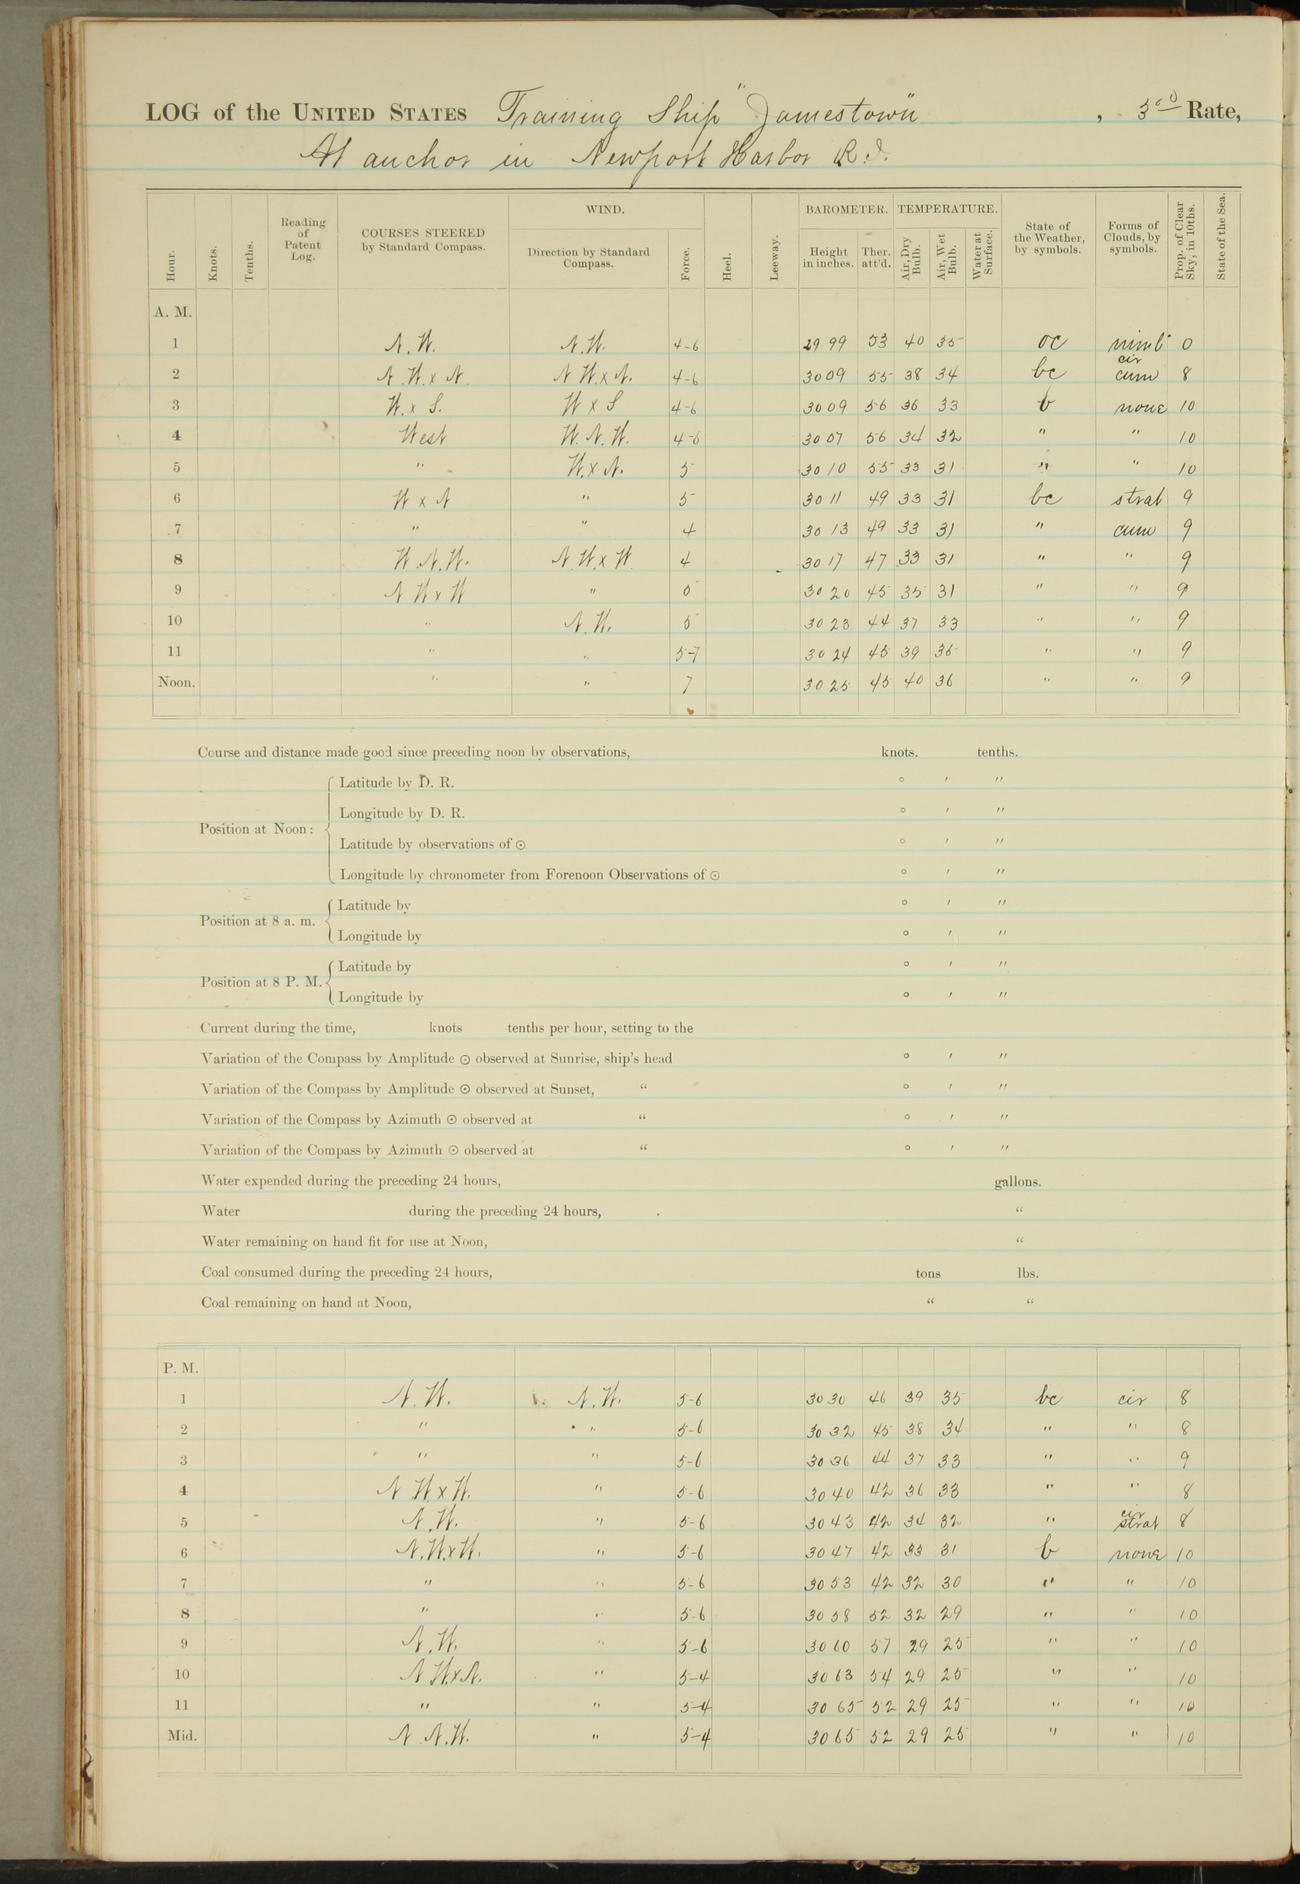 LOG of the UNITED STATES Training Ship "Jamestown" , 3rd Rate,
At anchor in Newport Harbor R.I.
Hour. Knots. Tenths. Reading of Patent Log. COURSES STEERED by Standard Compass. WIND. Direction by Standard Compass. Force. Heel. Leeway. BAROMETER. Height in inches. Ther. att'd. TEMPERATURE. Air, Dry Bulb. Air, Wet Bulb. Water at Surface. State of the Weather, by symbols. Forms of Clouds, by symbols. Prop. of Clear Sky, in 10ths. State of the Sea.
A. M.
1 N.W. N.W. 4-6 29 99 53 40 35 oc nimb 0
2 N.W.x N. N W.x N. 4-6 30 09 55 38 34 bc cir cum 8
3 W.x S. W x S 4-6 30 09 56 36 33 b none 10
4 West W.N.W. 4-6 30 07 56 34 32 " " 10
5 " W.x N. 5 30 10 55 33 31 " " 10
6 W x N " 5 30 11 49 33 31 bc strat 9
7 " " 4 30 13 49 33 31 " cum 9
8 W.N.W. N.W.x W 4 30 17 47 33 31 " " 9
9 N W x W " 5 30 20 45 35 31 " " 9
10 " N.W. 5 30 23 44 37 33 " " 9
11 " " 5-7 30 24 45 39 35 " " 9
Noon. " " 7 30 25 45 40 36 " " 9
Course and distance made good since preceding noon by observations, knots. tenths.
Position at Noon: Latitude by D. R. ° ′ ″
Longitude by D. R. ° ′ ″
Latitude by observations of ☉ ° ′ ″
Longitude by chronometer from Forenoon Observations of ☉ ° ′ ″
Position at 8 a. m. Latitude by ° ′ ″
Longitude by ° ′ ″
Position at 8 P. M. Latitude by ° ′ ″
Longitude by ° ′ ″
Current during the time, knots tenths per hour, setting to the
Variation of the Compass by Amplitude ☉ observed at Sunrise, ship's head ° ′ ″
Variation of the Compass by Amplitude ☉ observed at Sunset, " ° ′ ″
Variation of the Compass by Azimuth ☉ observed at " ° ′ ″
Variation of the Compass by Azimuth ☉ observed at " ° ′ ″
Water expended during the preceding 24 hours, gallons.
Water during the preceding 24 hours, "
Water remaining on hand fit for use at Noon, "
Coal consumed during the preceding 24 hours, tons lbs.
Coal remaining on hand at Noon, " "
P. M.
1 N.W. N.W. 5-6 30 30 46 39 35 bc cir 8
2 " " 5-6 30 32 45 38 34 " " 8
3 " " 5-6 30 36 44 37 33 " " 9
4 N W.x W. " 5-6 30 40 42 36 33 " " 8
5 N.W. " 5-6 30 43 42 34 32 " cir strat 8
6 N.W.x W. " 5-6 30 47 42 33 31 b none 10
7 " " 5-6 30 53 42 32 30 " " 10
8 " " 5-6 30 58 52 32 29 " " 10
9 N.W. " 5-6 30 60 57 29 25 " " 10
10 N W.x N. " 5-4 30 63 54 29 25 " " 10
11 " " 5-4 30 65 52 29 25 " " 10
Mid. N.N.W. " 5-4 30 65 52 29 25 " " 10